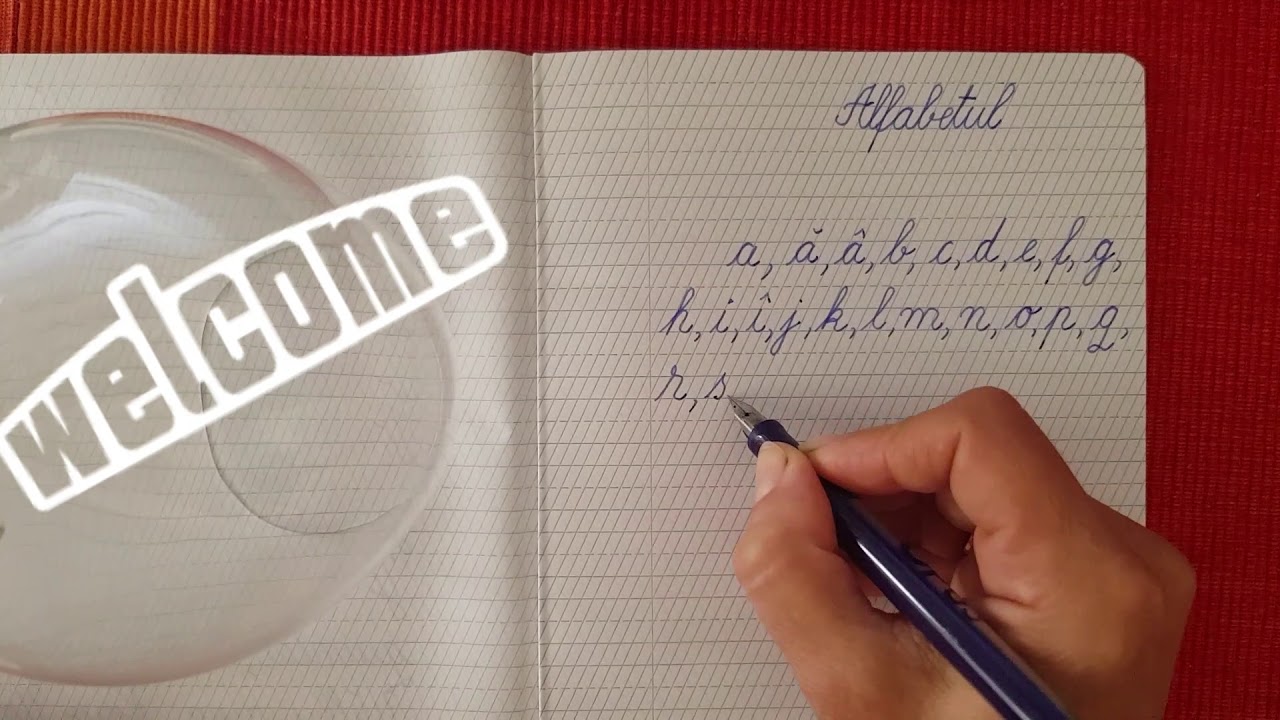 welcome
Alfabetul
a, ă, â, b, c, d, e, f, g,
h, i, î, j, k, l, m, n, o, p, q,
r, s